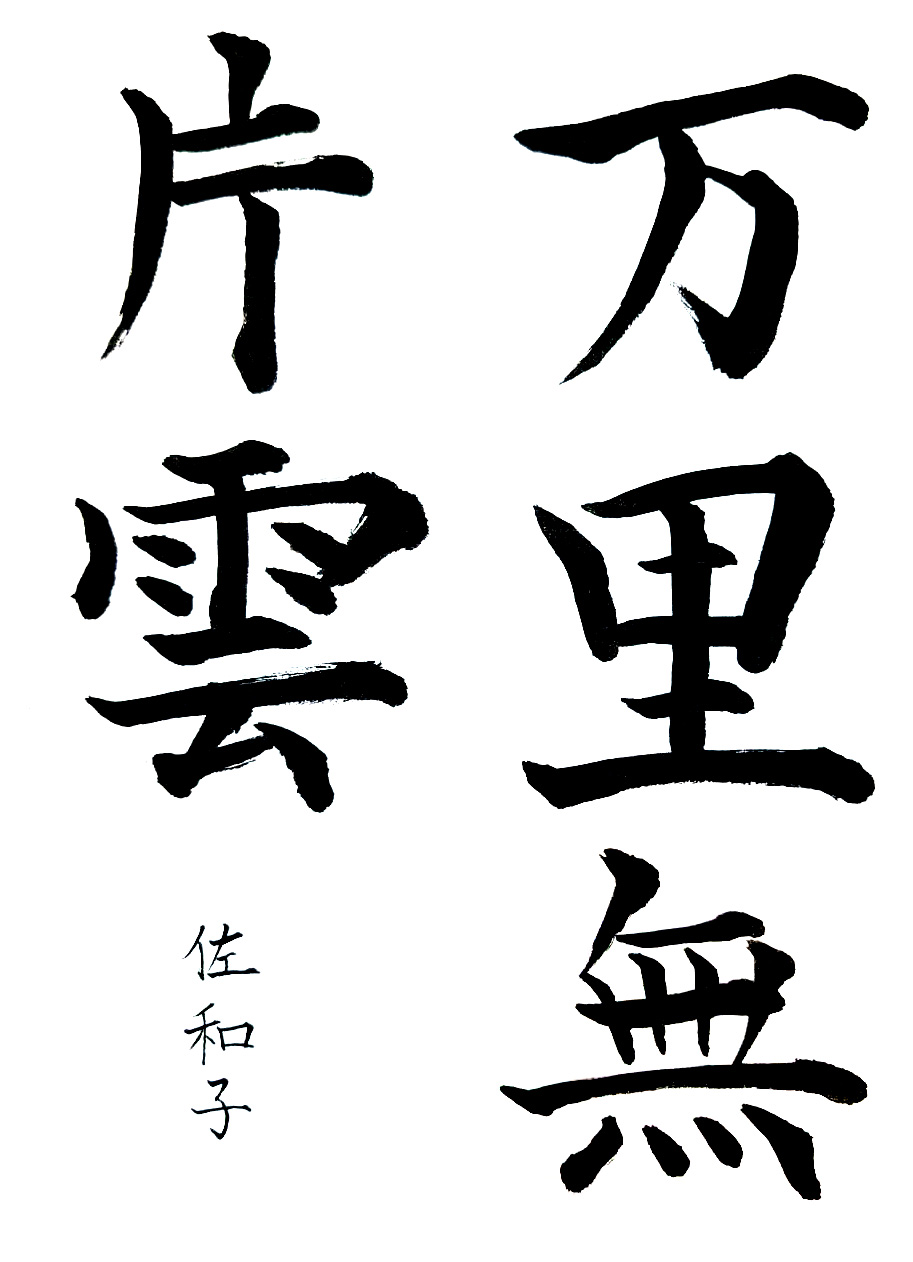 万里無
片雲
佐和子